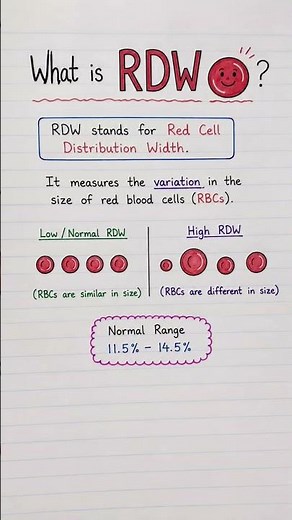 What is RDW ?
RDW stands for Red Cell
Distribution Width.
It measures the variation in the
size of red blood cells (RBCs).
Low / Normal RDW
High RDW
(RBCs are similar in size)
(RBCs are different in size)
Normal Range
11.5% – 14.5%